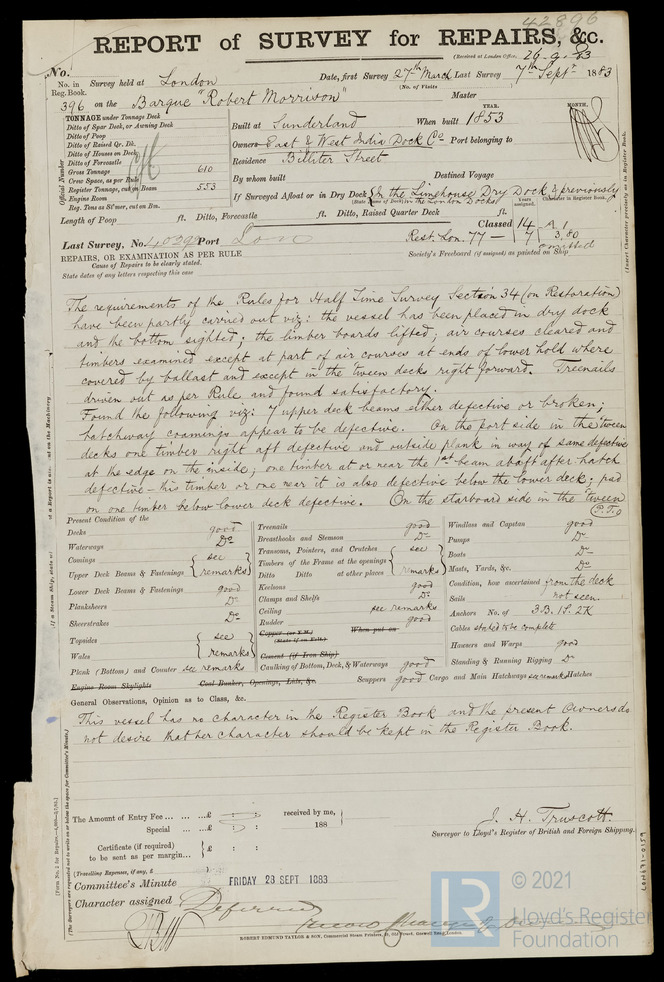 42896
REPORT of SURVEY for REPAIRS, &c.
(Received at London Office, 26.9.83
No.
No. in Reg. Book. Survey held at London Date, first Survey 27th March Last Survey 7th Sept 1883
(No. of Visits) Master
396 on the Barque "Robert Morrison"
TONNAGE under Tonnage Deck
Ditto of Spar Deck, or Awning Deck
Ditto of Poop
Ditto of Raised Qr. Dk.
Ditto of Houses on Deck
Ditto of Forecastle
Gross Tonnage 610
Crew Space, as per Rule
Register Tonnage, cut on Beam 553
Engine Room
Reg. Tons as St'mer, cut on Bm.
Official Number
Built at Sunderland When built YEAR. 1853 MONTH.
Owners East & West India Dock Co Port belonging to
Residence Billiter Street
By whom built Destined Voyage
If Surveyed Afloat or in Dry Dock In the Limehouse Dry Dock & previously
(State Name of Dock) in the London Docks
Years assigned. Character in Register Book.
Length of Poop ft. Ditto, Forecastle ft. Ditto, Raised Quarter Deck ft.
Classed 14 A 1
Last Survey, No. 40292 Port Lon
Rest. Lon. 77 — 7 3,80
Society's Freeboard (if assigned) as painted on Ship
REPAIRS, OR EXAMINATION AS PER RULE
Cause of Repairs to be clearly stated.
State dates of any letters respecting this case
The requirements of the Rules for Half Time Survey Section 34 (on Restoration)
have been partly carried out viz: the vessel has been placed in dry dock
and the bottom sighted; the limber boards lifted; air courses cleared and
timbers examined except at part of air courses at ends of lower hold where
covered by ballast and except in the tween decks right forward. Treenails
driven out as per Rule and found satisfactory.
Found the following viz: 7 upper deck beams either defective or broken;
hatchway coamings appear to be defective. On the port side in the tween
decks one timber right aft defective and outside plank in way of same defective
at the edge on the inside; one timber at or near the 1st beam abaft after hatch
defective — this timber or one near it is also defective below the lower deck; and
on one timber below lower deck defective. On the starboard side in the tween
(P.T.O)
Present Condition of the
Decks good
Waterways Do
Comings
Upper Deck Beams & Fastenings see remarks
Lower Deck Beams & Fastenings good
Planksheers Do
Sheerstrakes Do
Topsides
Wales see remarks
Plank (Bottom) and Counter see remarks
Engine Room Skylights Coal Bunker, Openings, Lids, &c.
Treenails good
Breasthooks and Stemson Do
Transoms, Pointers, and Crutches
Timbers of the Frame at the openings see remarks
Ditto Ditto at other places
Keelsons good
Clamps and Shelfs Do
Ceiling see remarks
Rudder good
Copper (or Y.M.) When put on
(State if on Felt)
Cement (if Iron Ship)
Caulking of Bottom, Deck, & Waterways good
Scuppers good Cargo and Main Hatchways see remarks Hatches
Windlass and Capstan good
Pumps Do
Boats Do
Masts, Yards, &c. Do
Condition, how ascertained from the deck
Sails not seen.
Anchors No. of 3B. 1S. 2K
Cables stated to be complete
Hawsers and Warps good
Standing & Running Rigging Do
General Observations, Opinion as to Class, &c.
This vessel has no character in the Register Book and the present Owners do
not desire that her character should be kept in the Register Book.
The Amount of Entry Fee ... ... ...£ : : received by me,
Special ... ...£ : : 188
Certificate (if required) to be sent as per margin... £ : :
(Travelling Expenses, if any, £
J. H. Truscott
Surveyor to Lloyd's Register of British and Foreign Shipping.
Committee's Minute FRIDAY 28 SEPT 1883
Character assigned Deferred
ROBERT EDMUND TAYLOR & SON, Commercial Steam Printers,
LON691-0159
LR
© 2021
Lloyd's Register
Foundation